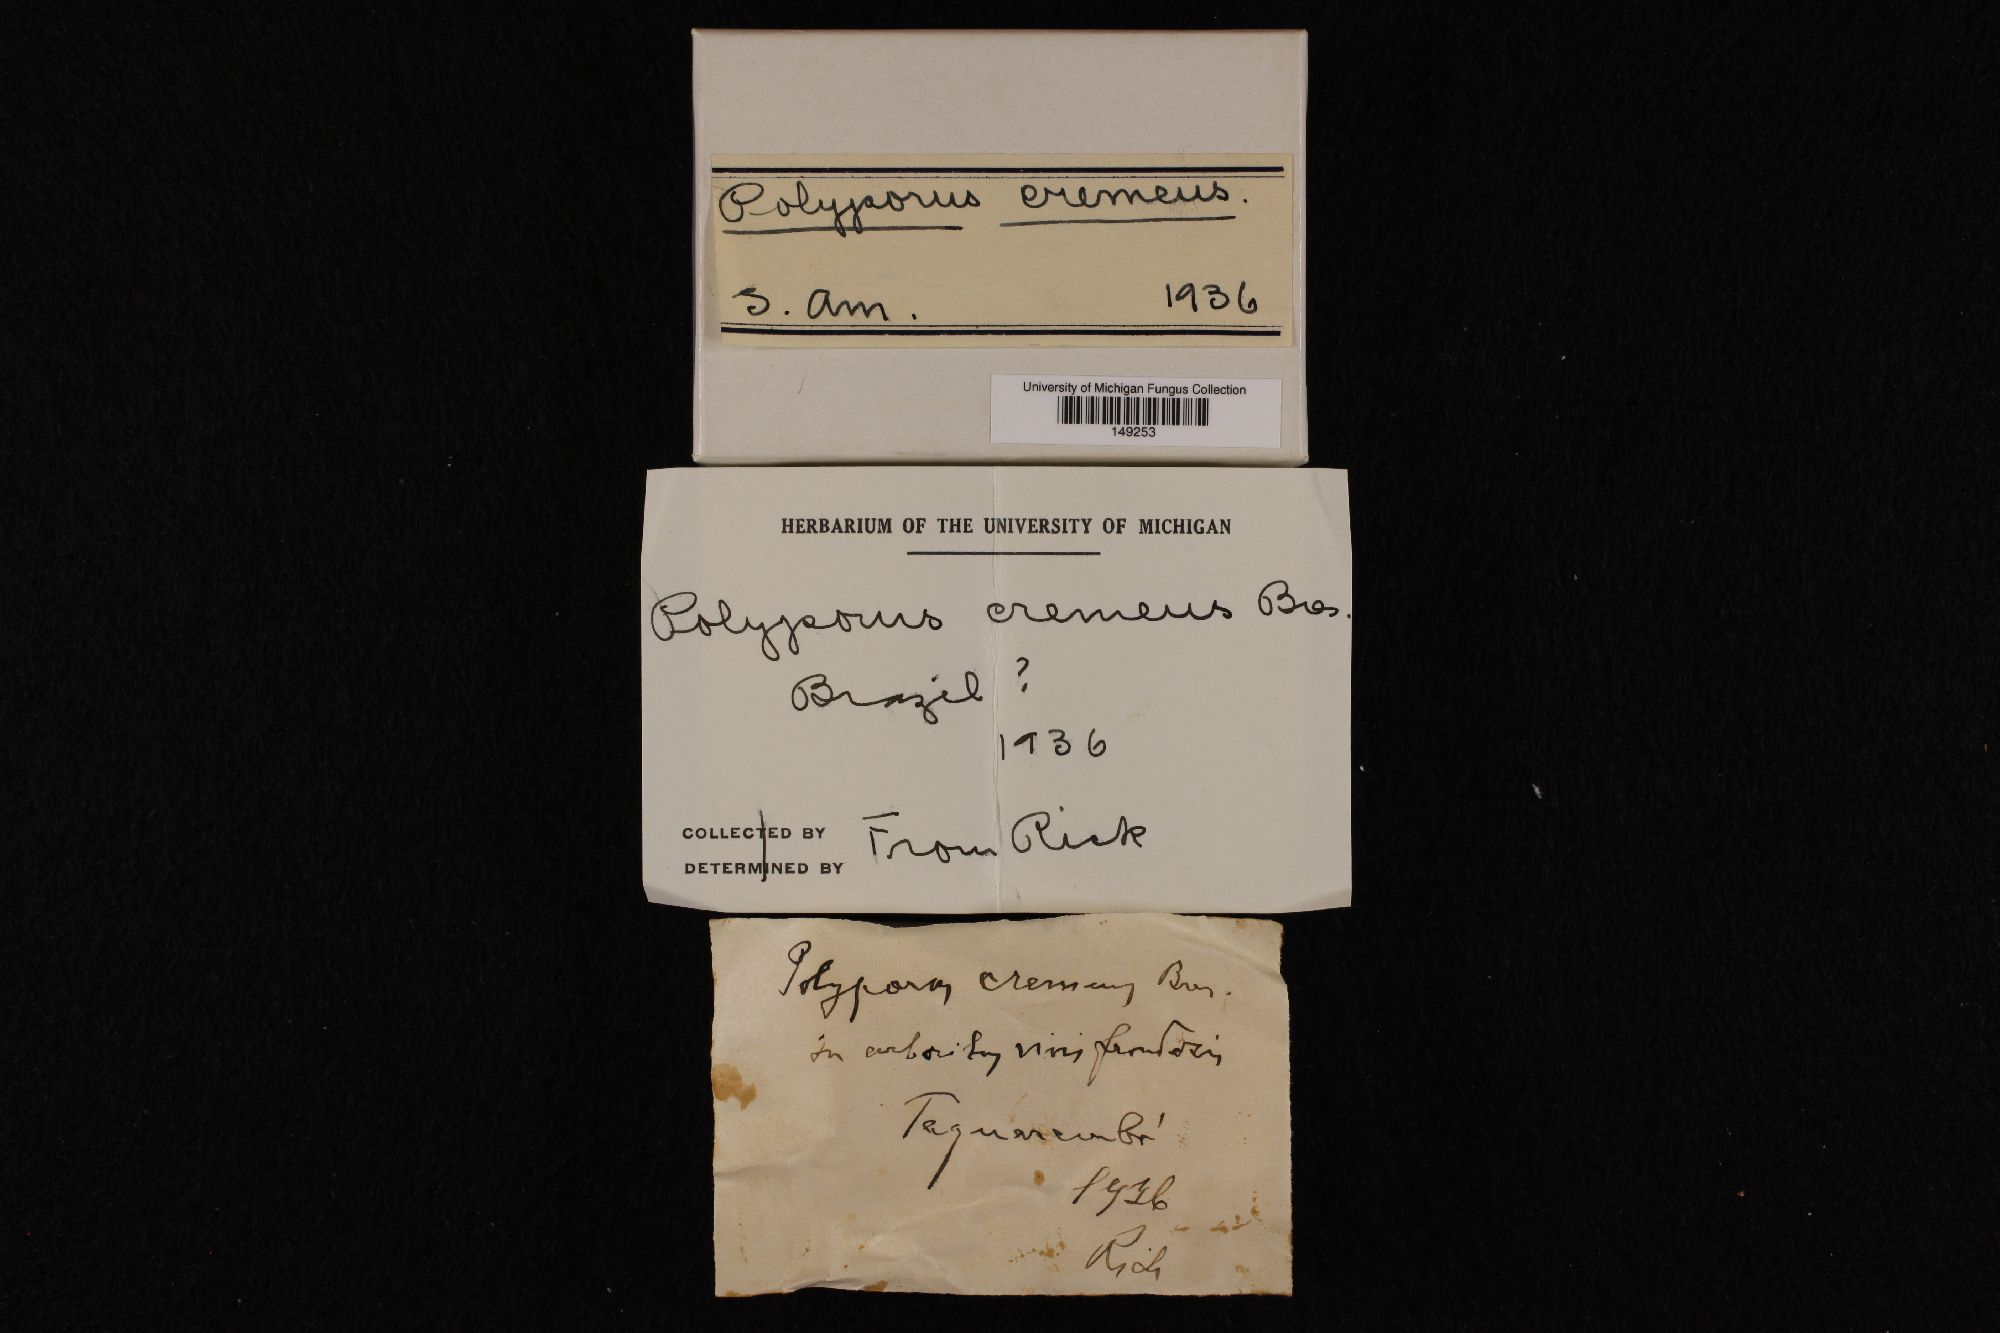 Polyporus cremeus.
S. Am. 1936
University of Michigan Fungus Collection
149253
HERBARIUM OF THE UNIVERSITY OF MICHIGAN
Polyporus cremeus Bres.
Brazil ?
1936
COLLECTED BY
DETERMINED BY
From Rick
Polyporus cremeus Bres.
in arboribus vivis frondosis
1936
Rick